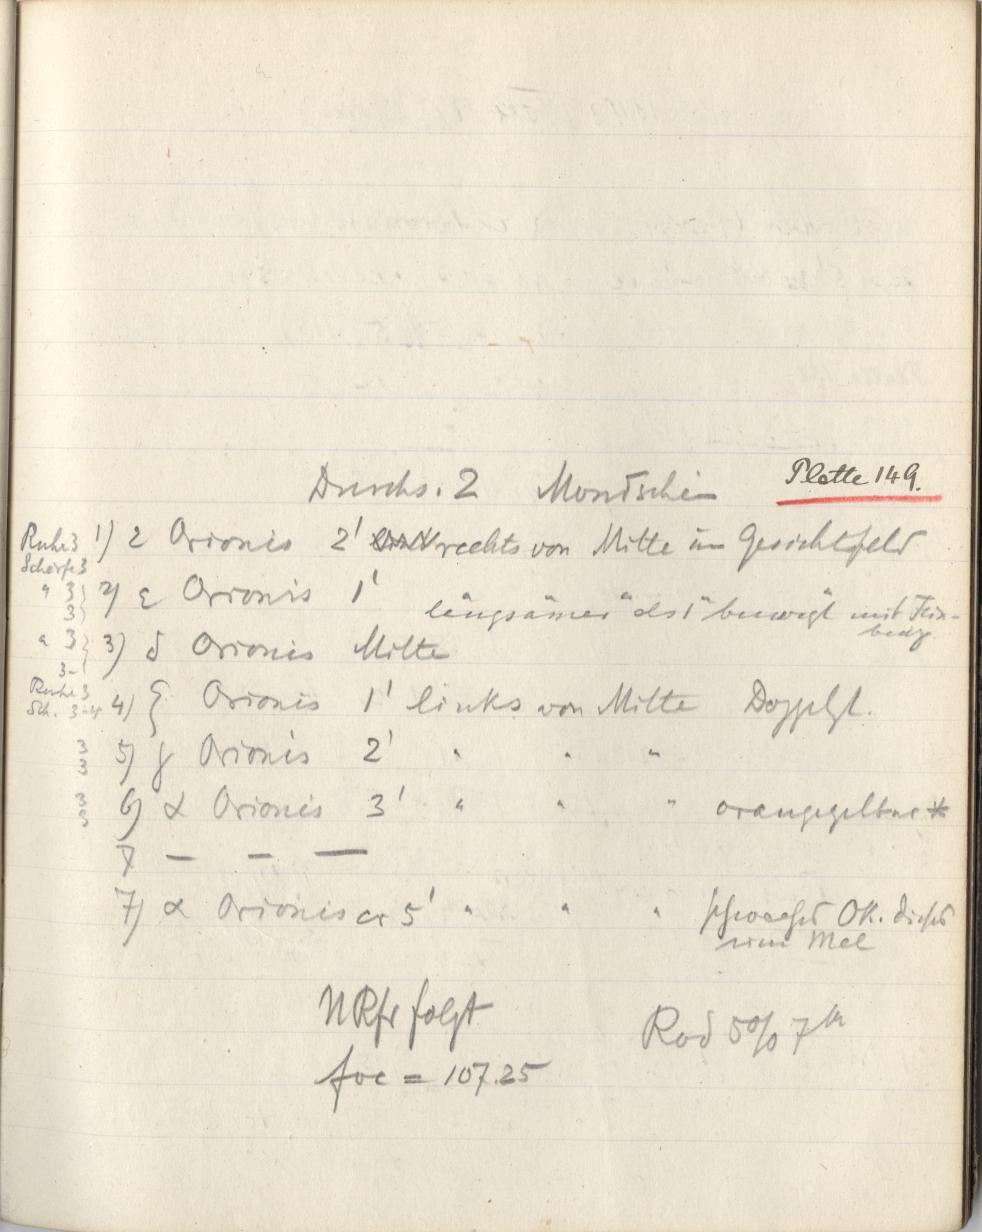 Durchs. 2 Mondschein Platte 149.
Ruhe 3 1) ε Orionis 2' rechts von Mitte im Gesichtsfeld
Schärfe 3
" 3 2) ε Orionis 1'
3 langsamer als 1 bewegt mit Fein-
bewg.
" 3 3) δ Orionis Mitte
3-
Ruhe 3
Sch. 3-4 4) ξ Orionis 1' links von Mitte Doppelst.
3 5) γ Orionis 2' " " "
3
3 6) α Orionis 3' " " " orangegelber *
3
7 — — —
7) α Orionis ca 5' " " " schwaches Ok. dieses
mal
NRfr folgt
Rod 5% 7m
foc = 107.25